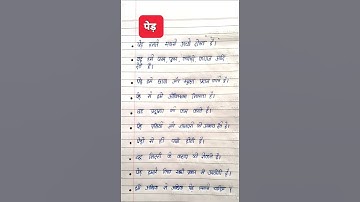 पेड़
पेड़ हमारे सबसे अच्छे दोस्त है।
पेड़ हमें फल, फूल, लकड़ी आदि
देते है।
पेड़ हमें छाया और शुद्ध हवा देते है।
पेड़ से हमें ऑक्सीजन मिलता है।
यह प्रदूषण को कम करते है।
पेड़ पक्षियों और जानवरों को देते है।
पेड़ों से ही वर्षा होती है।
यह मिट्टी के कटाव को रोकते है।
पेड़ हमारे लिए प्रकार से उपयोगी है।
हमें अधिक से अधिक पेड़ लगाने चाहिए।